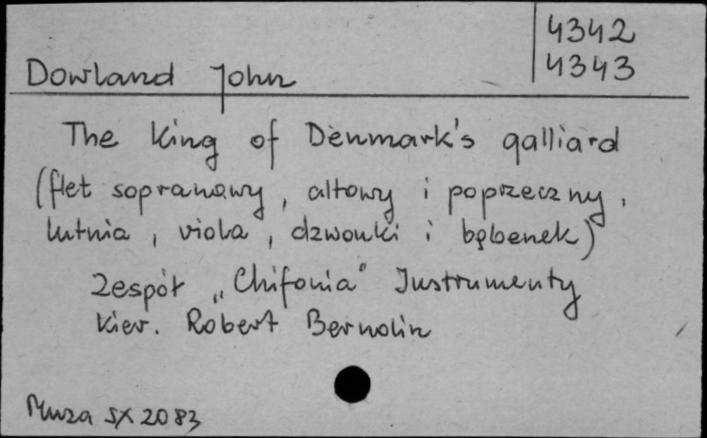 4342
Dowland John 4343
The King of Denmark's galliard
(flet sopranowy, altowy i poprzeczny,
lutnia, viola, dzwonki i bębenek)
Zespół „Chifonia" Instrumenty
kier. Robert Bernolin
Muza SX 2083